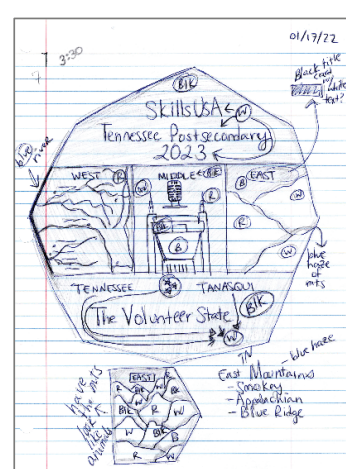 01/17/22
3:30
Black title
card w/
white
text?
Blk
SkillsUSA
W
Tennessee Postsecondary
2023
blue
river
WEST
R
MIDDLE
Blk
EAST
B
R
W
R
W
B
R
W
W
blue
haze
of
mts
TENNESSEE
TANASQUI
Blk
The Volunteer State
W
TN
East Mountains - blue haze
- Smokey
- Appalachian
- Blue Ridge
have
the mts
look
like
animals
EAST
R
Blk
W
R
W
Blk
R
W
R
W
Blk
B
R
W